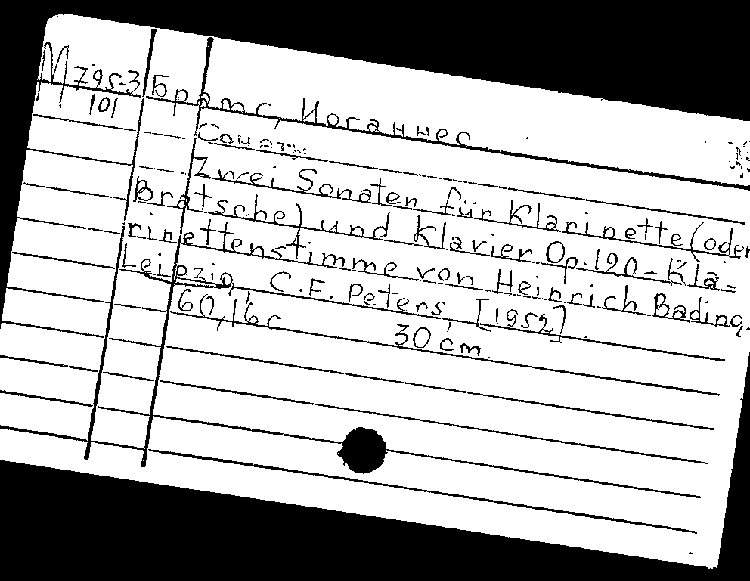 М795-3 Брамс, Иоганнес
101
Сонаты
Zwei Sonaten für Klarinette (oder
Bratsche) und Klavier Op.120-Kla=
rinettenstimme von Heinrich Bading.
Leipzig, C.F. Peters, [1952]
60,16 c 30 cm